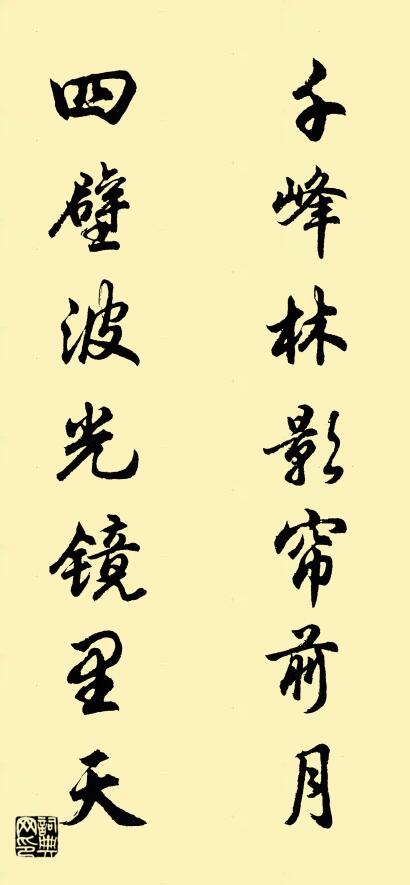 千峰林影帘前月
四壁波光镜里天
詞典网印